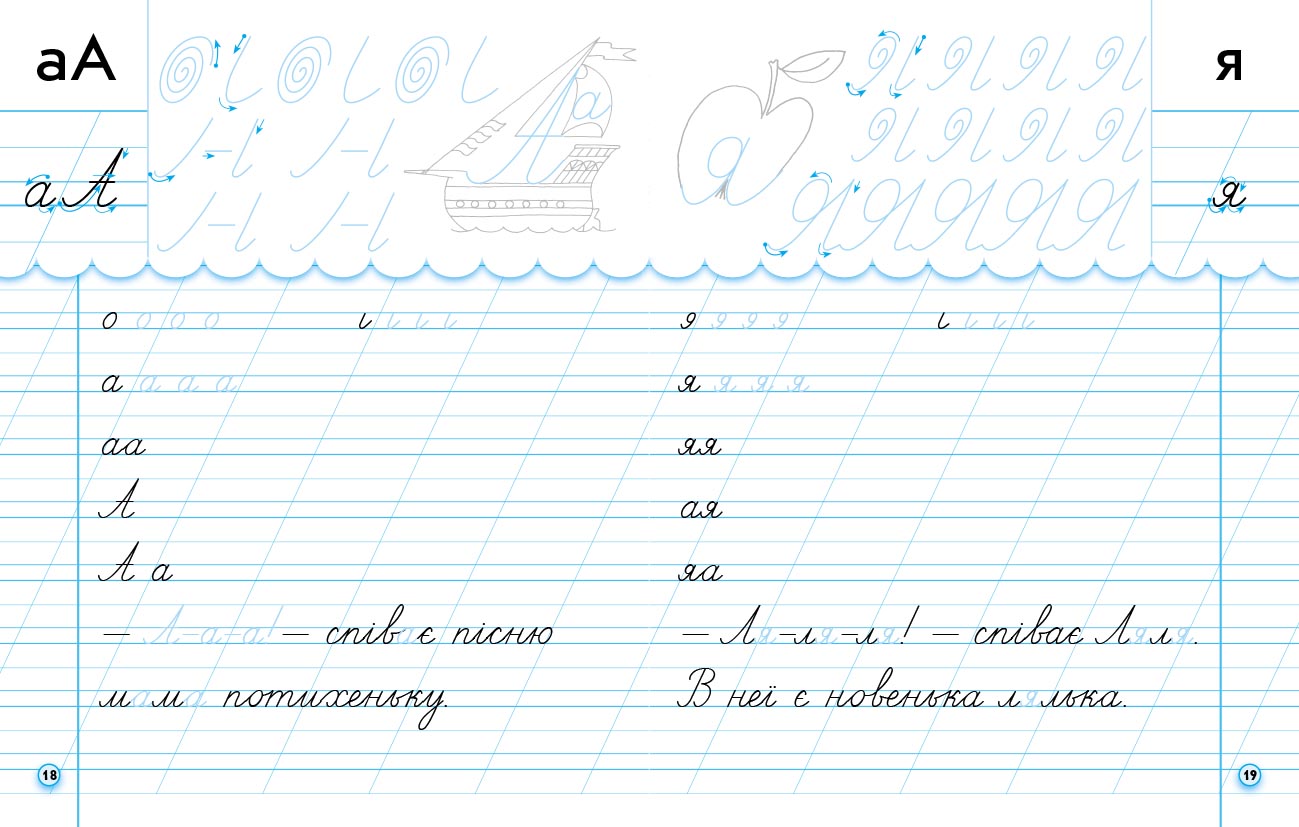 аА
а А
А а
о о о о і і і і
а а а а
аа
А
А а
— А-а-а! — співає пісню
мама потихеньку.
18
я
а
я
э э э э і і і і
я я я я
яя
ая
яа
— Ля-ля-ля! — співає Ляля.
В неї є новенька лялька.
19